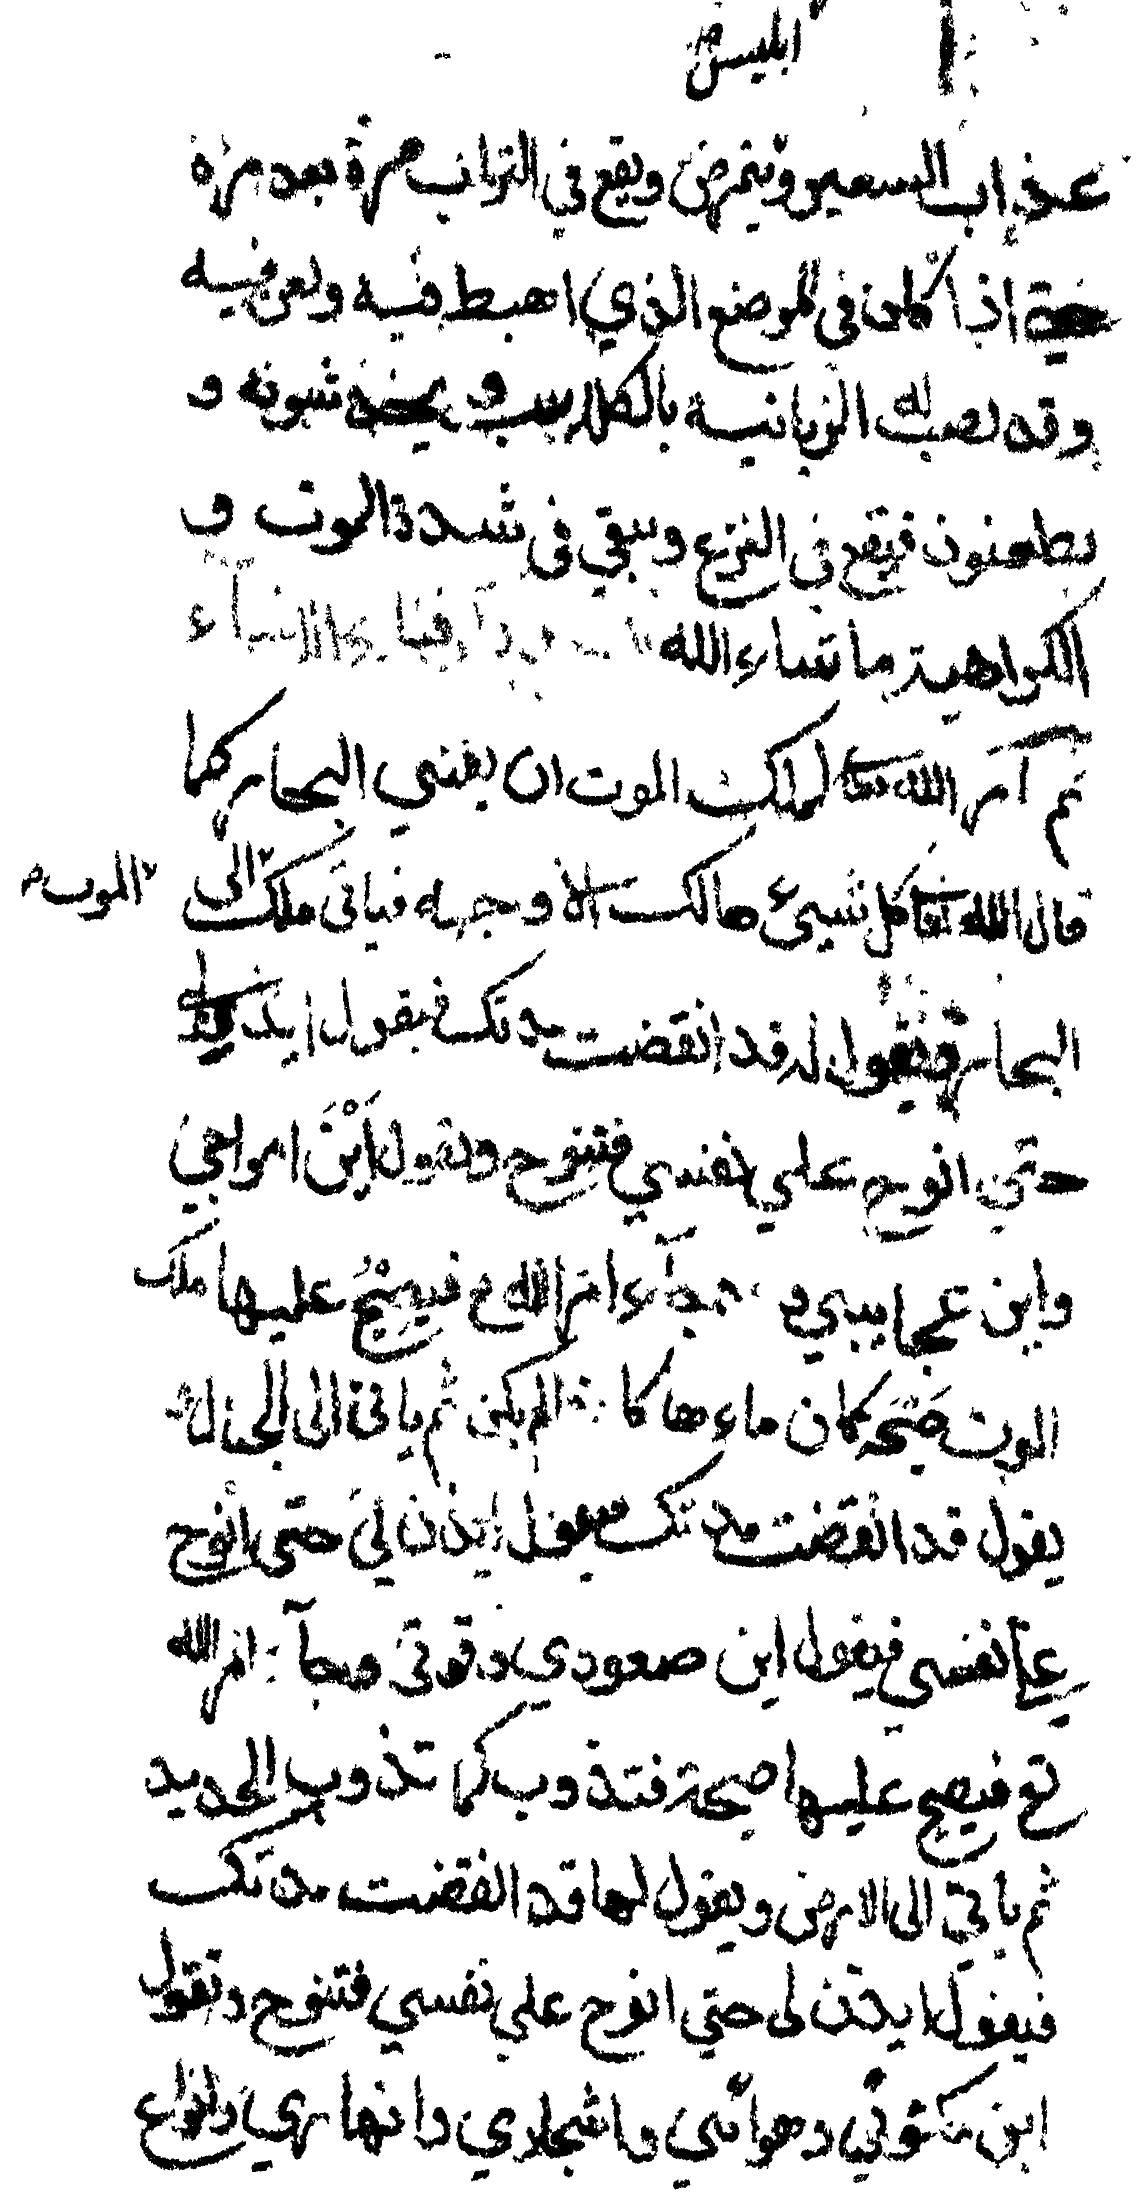 ابليس
عذاب السعير ويتمرض ويقع في التراب مرة بعد مرة
حتى اذا كان في الموضع الذي اهبط فيه ولعن فيه
وقد نصبت له الزبانية بالكلاليب و يخدشونه و
يطعنون فيقع في النزع ويبقي في شدة الموت و
الكراهية ما شاء الله الاشياء
ثم امر الله تعا لملك الموت ان يفني البحار كما
قال الله تعا كل شيئ هالك الا وجهه فياتى ملك الموت الى
البحار فيقول له قد انقضت مدتك فيقول ايذن لي
حتي انوح علي نفسي فتنوح وتقول اَيْنَ امواجي
واين عجايبي و جاء امر الله تع فيصيح عليها ملك
الموت صَيْحَة كان ماءها كا لم يكن ثم ياتى الى الجبال
يقول قد انقضت مدتك فيقول ايذن لي حتى انوح
على نفسي فيقول اين صعودي وقوتي وجآ امر الله
تع فيصيح عليها صيحة فتذوب كما تذوب الحديد
ثم ياتي الى الارض ويقول لها قد انقضت مدتك
فيقول ايذن لى حتي انوح علي نفسي فتنوح وتقول
اين وهوائي واشجاري وانهاري وانواع